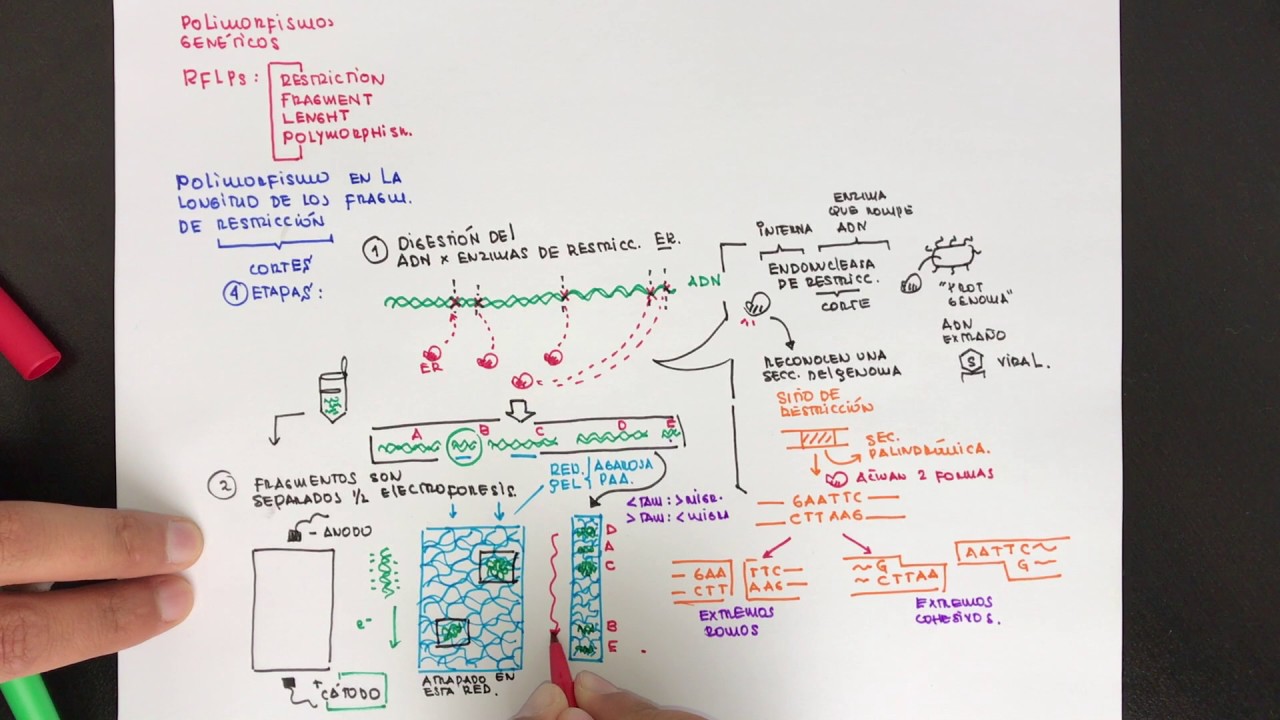 POLIMORFISMOS
GENÉTICOS
RFLPs:
RESTRICTION
FRAGMENT
LENGHT
POLYMORPHISM.
POLIMORFISMO EN LA
LONGITUD DE LOS FRAGM.
DE RESTRICCIÓN
CORTES
④ ETAPAS:
① DIGESTIÓN DEL
ADN x ENZIMAS DE RESTRICC. ER.
ADN
ER
A B C D E
② FRAGMENTOS SON
SEPARADOS ½ ELECTROFORESIS.
RED AGAROSA
GEL PAA.
- ANODO
e-
+ CÁTODO
ATRAPADO EN
ESTA RED.
<TAM: >MIGR.
>TAM: <MIGRA
D
A
C
B
E
INTERNA
ENZIMA
QUE ROMPE
ADN
ENDONUCLEASA
DE RESTRICC.
CORTE
"PROT
GENOMA"
ADN
EXTRAÑO
S VIRAL.
RECONOCEN UNA
SECC. DEL GENOMA
SITIO DE
RESTRICCIÓN
SEC.
PALINDRÓMICA.
ACTÚAN 2 FORMAS
GAATTC
CTTAAG
GAA TTC
CTT AAG
EXTREMOS
ROMOS
G AATTC
CTTAA G
EXTREMOS
COHESIVOS.